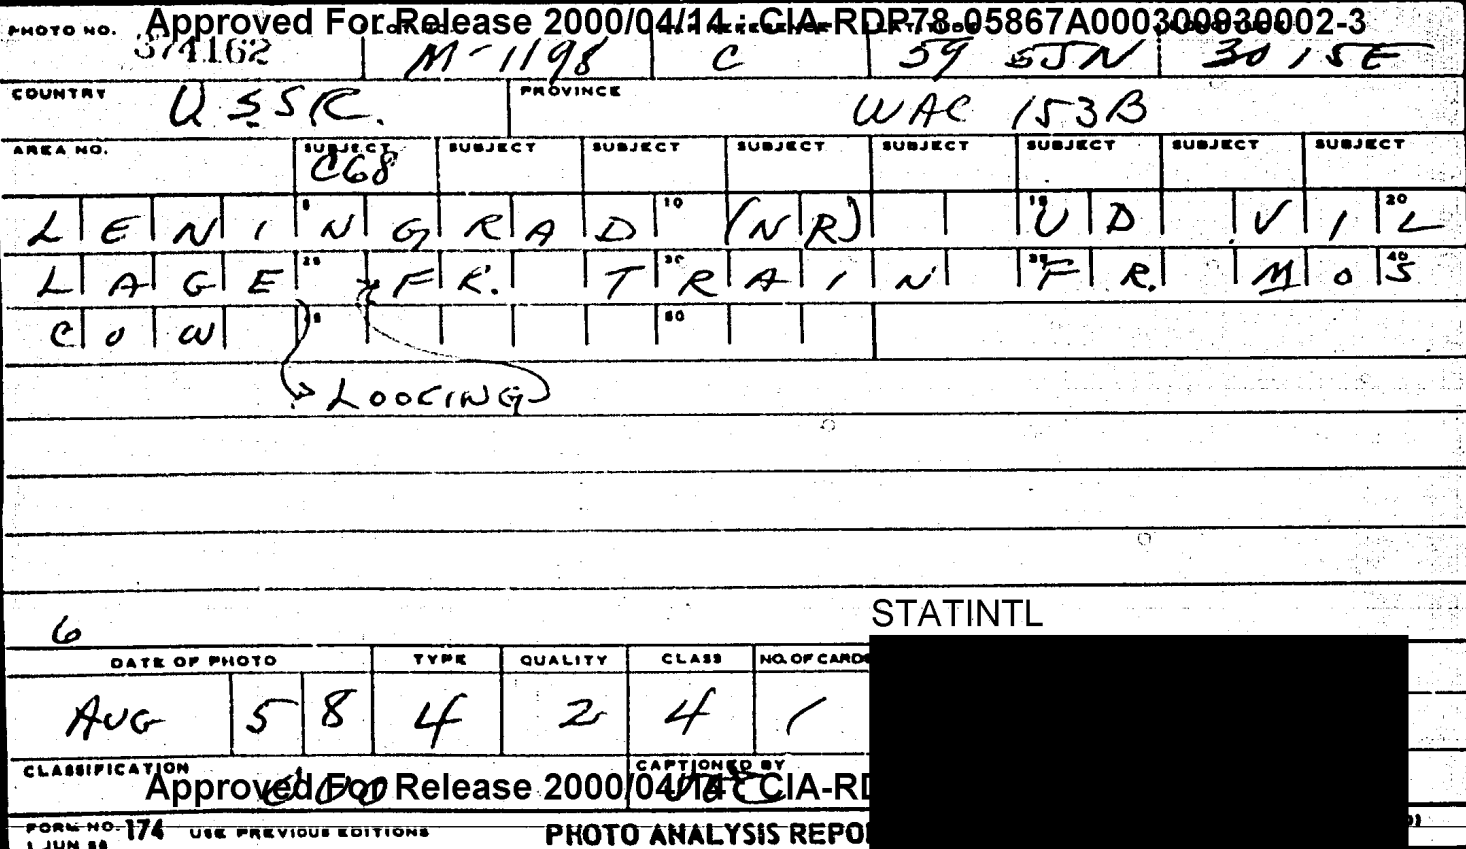 Approved For Release 2000/04/14 : CIA-RDP78-05867A000300930002-3
PHOTO NO. 374162 M-1198 C 59 55N 30 15E
COUNTRY U.S.S.R. PROVINCE WAC 153B
AREA NO. SUBJECT C68 SUBJECT SUBJECT SUBJECT SUBJECT SUBJECT SUBJECT SUBJECT
5 10 15 20
LENINGRAD (NR) UD VIL
25 30 35 40
LAGE FR. TRAIN FR. MOS
COW 50
LOOCING
6
STATINTL
DATE OF PHOTO TYPE QUALITY CLASS NO. OF CARDS
AUG 58 4 2 4 1
CLASSIFICATION CAPTIONED BY
Approved For Release 2000/04/14 : CIA-RD
FORM NO. 174 USE PREVIOUS EDITIONS PHOTO ANALYSIS REPO
1 JUN 58